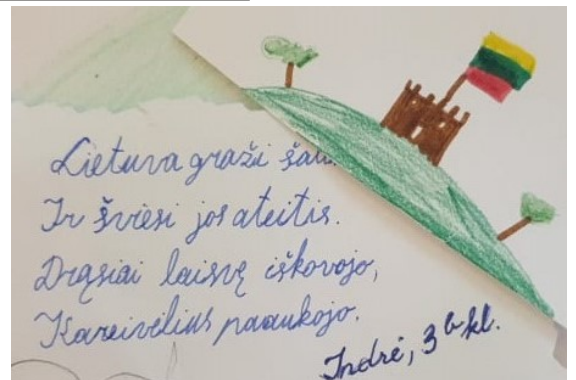 Lietuva graži
Ir šviesi jos ateitis.
Drąsiai laisvę iškovojo,
Kareivėlius paaukojo.
Indrė, 3 b kl.